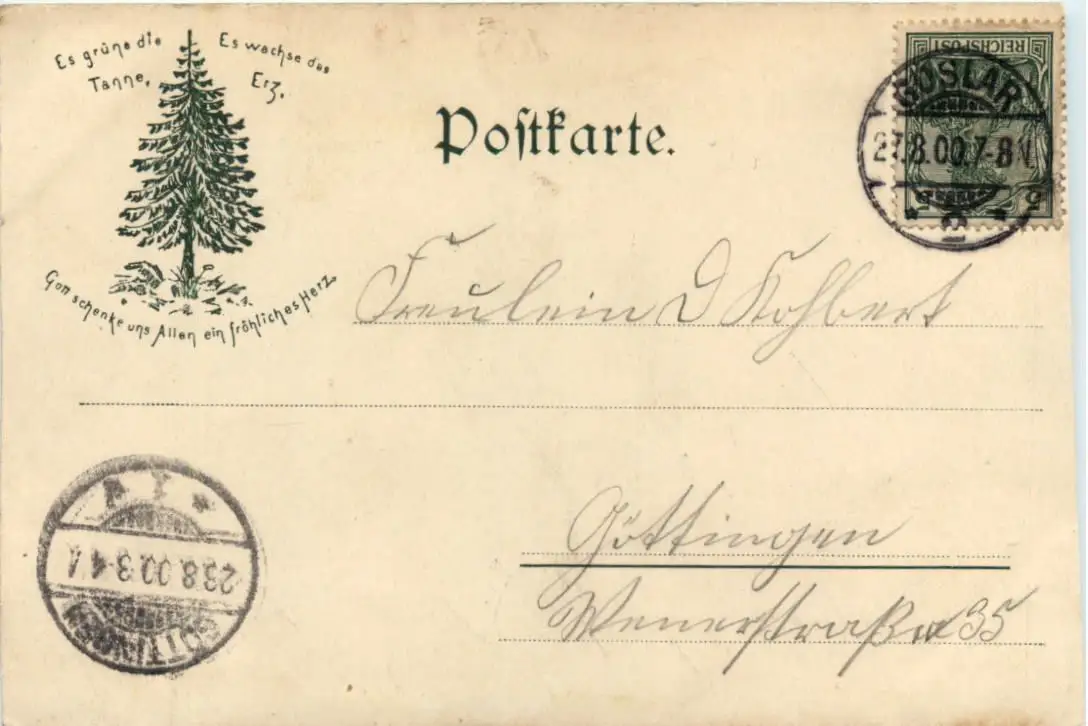 Es grüne die
Tanne,
Es wachse das
Erz,
Gott schenke uns Allen ein fröhliches Herz
Poſtkarte.
REICHSPOST
5 5
GOSLAR
27.8.00.7-8V.
* 2 *
Fräulein D
Göttingen
35
GÖTTINGEN
28.8.00.3-4